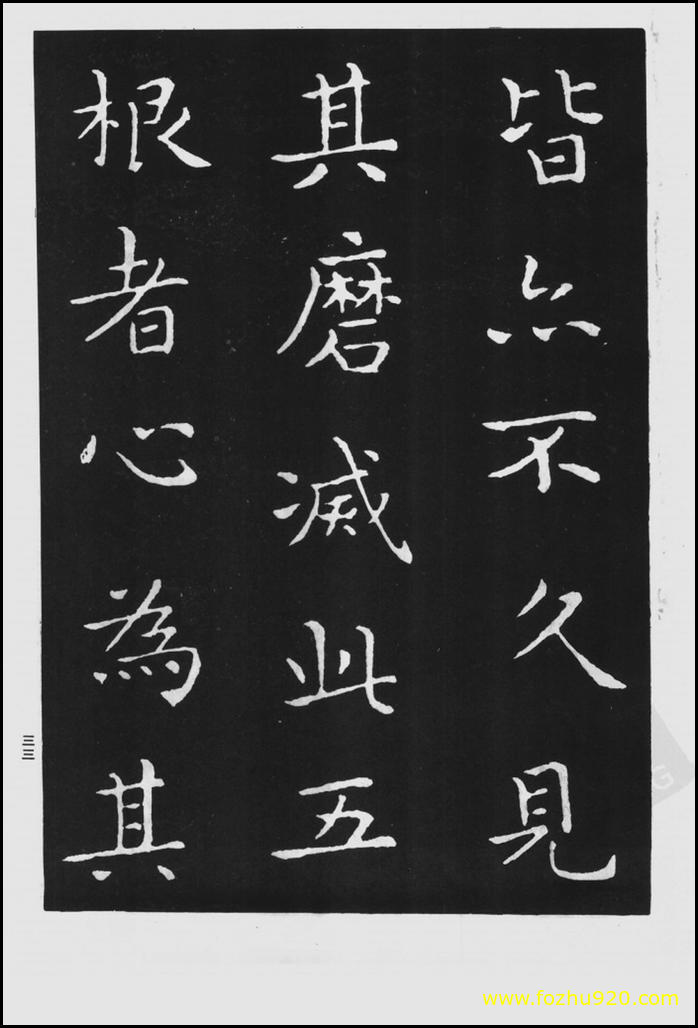 皆亦不久見
其磨滅此五
根者心為其
三三
www.fozhu920.com